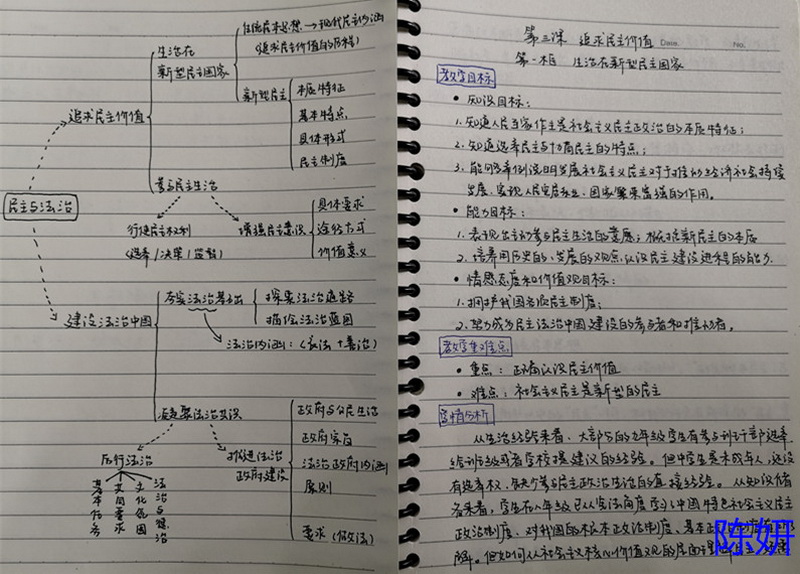 民主与法治
追求民主价值
生活在
新型民主国家
传统民本思想→现代民主内涵
(追求民主价值的历程)
新型民主
本质特征
基本特点
具体形式
民主制度
参与民主生活
行使民主权利
(选举/决策/监督)
增强民主意识
具体要求
途径方式
价值意义
建设法治中国
夯实法治基础
探索法治道路
描绘法治蓝图
法治内涵：(良法+善治)
凝聚法治共识
厉行法治
基本任务
共同要求
文化氛围
法治与德治
推进法治
政府建设
政府与公民生活
政府宗旨
法治政府的内涵
原则
要求(做法)
第三课 追求民主价值 Date. No.
第一框 生活在新型民主国家
教学目标
• 知识目标：
1. 知道人民当家作主是社会主义民主政治的本质特征；
2. 知道选举民主与协商民主的特点；
3. 能够举例说明发展社会主义民主对于推动经济社会持续
发展、实现人民安居乐业、国家繁荣富强的作用。
• 能力目标：
1. 表现出主动参与民主生活的意愿；概括新民主的本质
2. 培养用历史的、发展的观点认识民主建设进程的能力。
• 情感态度和价值观目标：
1. 拥护我国各项民主制度；
2. 努力成为民主法治中国建设的参与者和推动者。
教学重难点
• 重点：正确认识民主价值
• 难点：社会主义民主是新型的民主
学情分析
从生活经验来看，大部分的九年级学生有参与班干部选举
给班级或者学校提建议的经验。但中学生是未成年人，还没
有选举权，缺少参与民主政治生活的直接经验。从知识储
备来看，学生在八年级已从宪法角度学习了中国特色社会主义民主
政治制度、对我国的根本政治制度、基本政
解。但如何从社会主义核心价值观的层面
陈妍